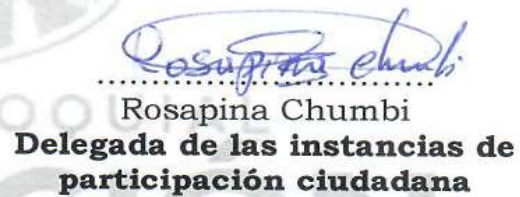 Rosapina Chumbi
..............................
Rosapina Chumbi
Delegada de las instancias de
participación ciudadana